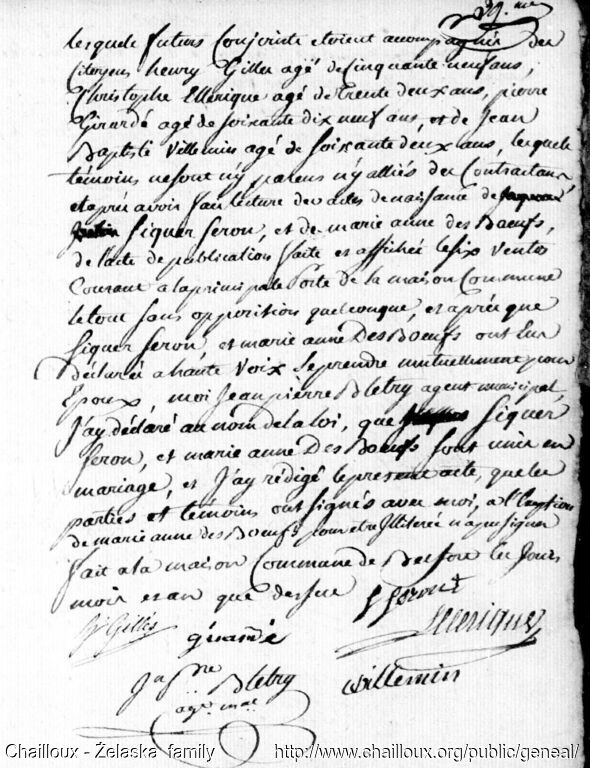 29.me
lesquels futurs Conjoints etoient accompagnés des
Citoyens henry Gilles agé de Cinquante neuf ans,
Christophe Ellerique agé de trente deux ans, pierre
Girardé agé de soixante dix neuf ans, et de Jean
Baptiste Villemin agé de Soixante deux ans, lesquels
témoins ne sont n'y parens n'y alliés des Contractans,
et après avoir fait lecture des actes de naissance de
Siquer feron, et de marie anne des Bœufs,
de l'acte de publication faite et affichée le six Ventos
Courant a la principale Porte de la maison Commune
le tout sans opposition quelconque, et après que
Siquer feron, et marie anne Des Bœufs ont Eu
déclarée a haute Voix se prendre mutuellement pour
Epoux, moi Jean pierre Bletry agent municipal,
J'ay déclaré au nom de la loi, que Siquer
feron, et marie anne Des Bœufs sont unis en
mariage, et J'ay rédigé le present acte, que les
parties et témoins ont signés avec moi, a l'Exeption
de marie anne des Bœufs pour etre Illiterée n'a pu signer
fait a la maison Commune de Belfort les Jours
mois et an que dessus
f feront
h Gilles
girardé
Ellerique
Jn pre Bletry
willemin
agt mal
Chailloux - Żelaska family http://www.chailloux.org/public/geneal/